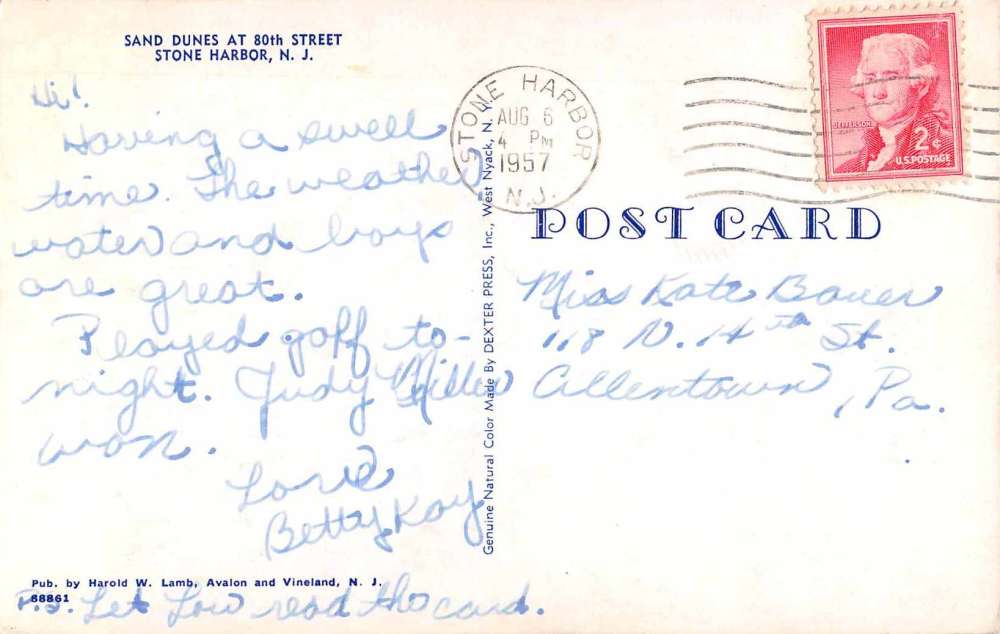 SAND DUNES AT 80th STREET
STONE HARBOR, N. J.
Hi!
Having a swell
time. The weather,
water and boys
are great.
Played golf to-
night. Judy Miller
won.
Love
Betty Kay
Pub. by Harold W. Lamb, Avalon and Vineland, N. J.
88861
P.S. Let Lou read tho card.
Genuine Natural Color Made By DEXTER PRESS, Inc., West Nyack, N.
STONE HARBOR
AUG 6
4 PM
1957
N.J.
JEFFERSON
2¢
U.S. POSTAGE
POST CARD
Miss Kate Bauer
118 N. 14th St.
Allentown, Pa.